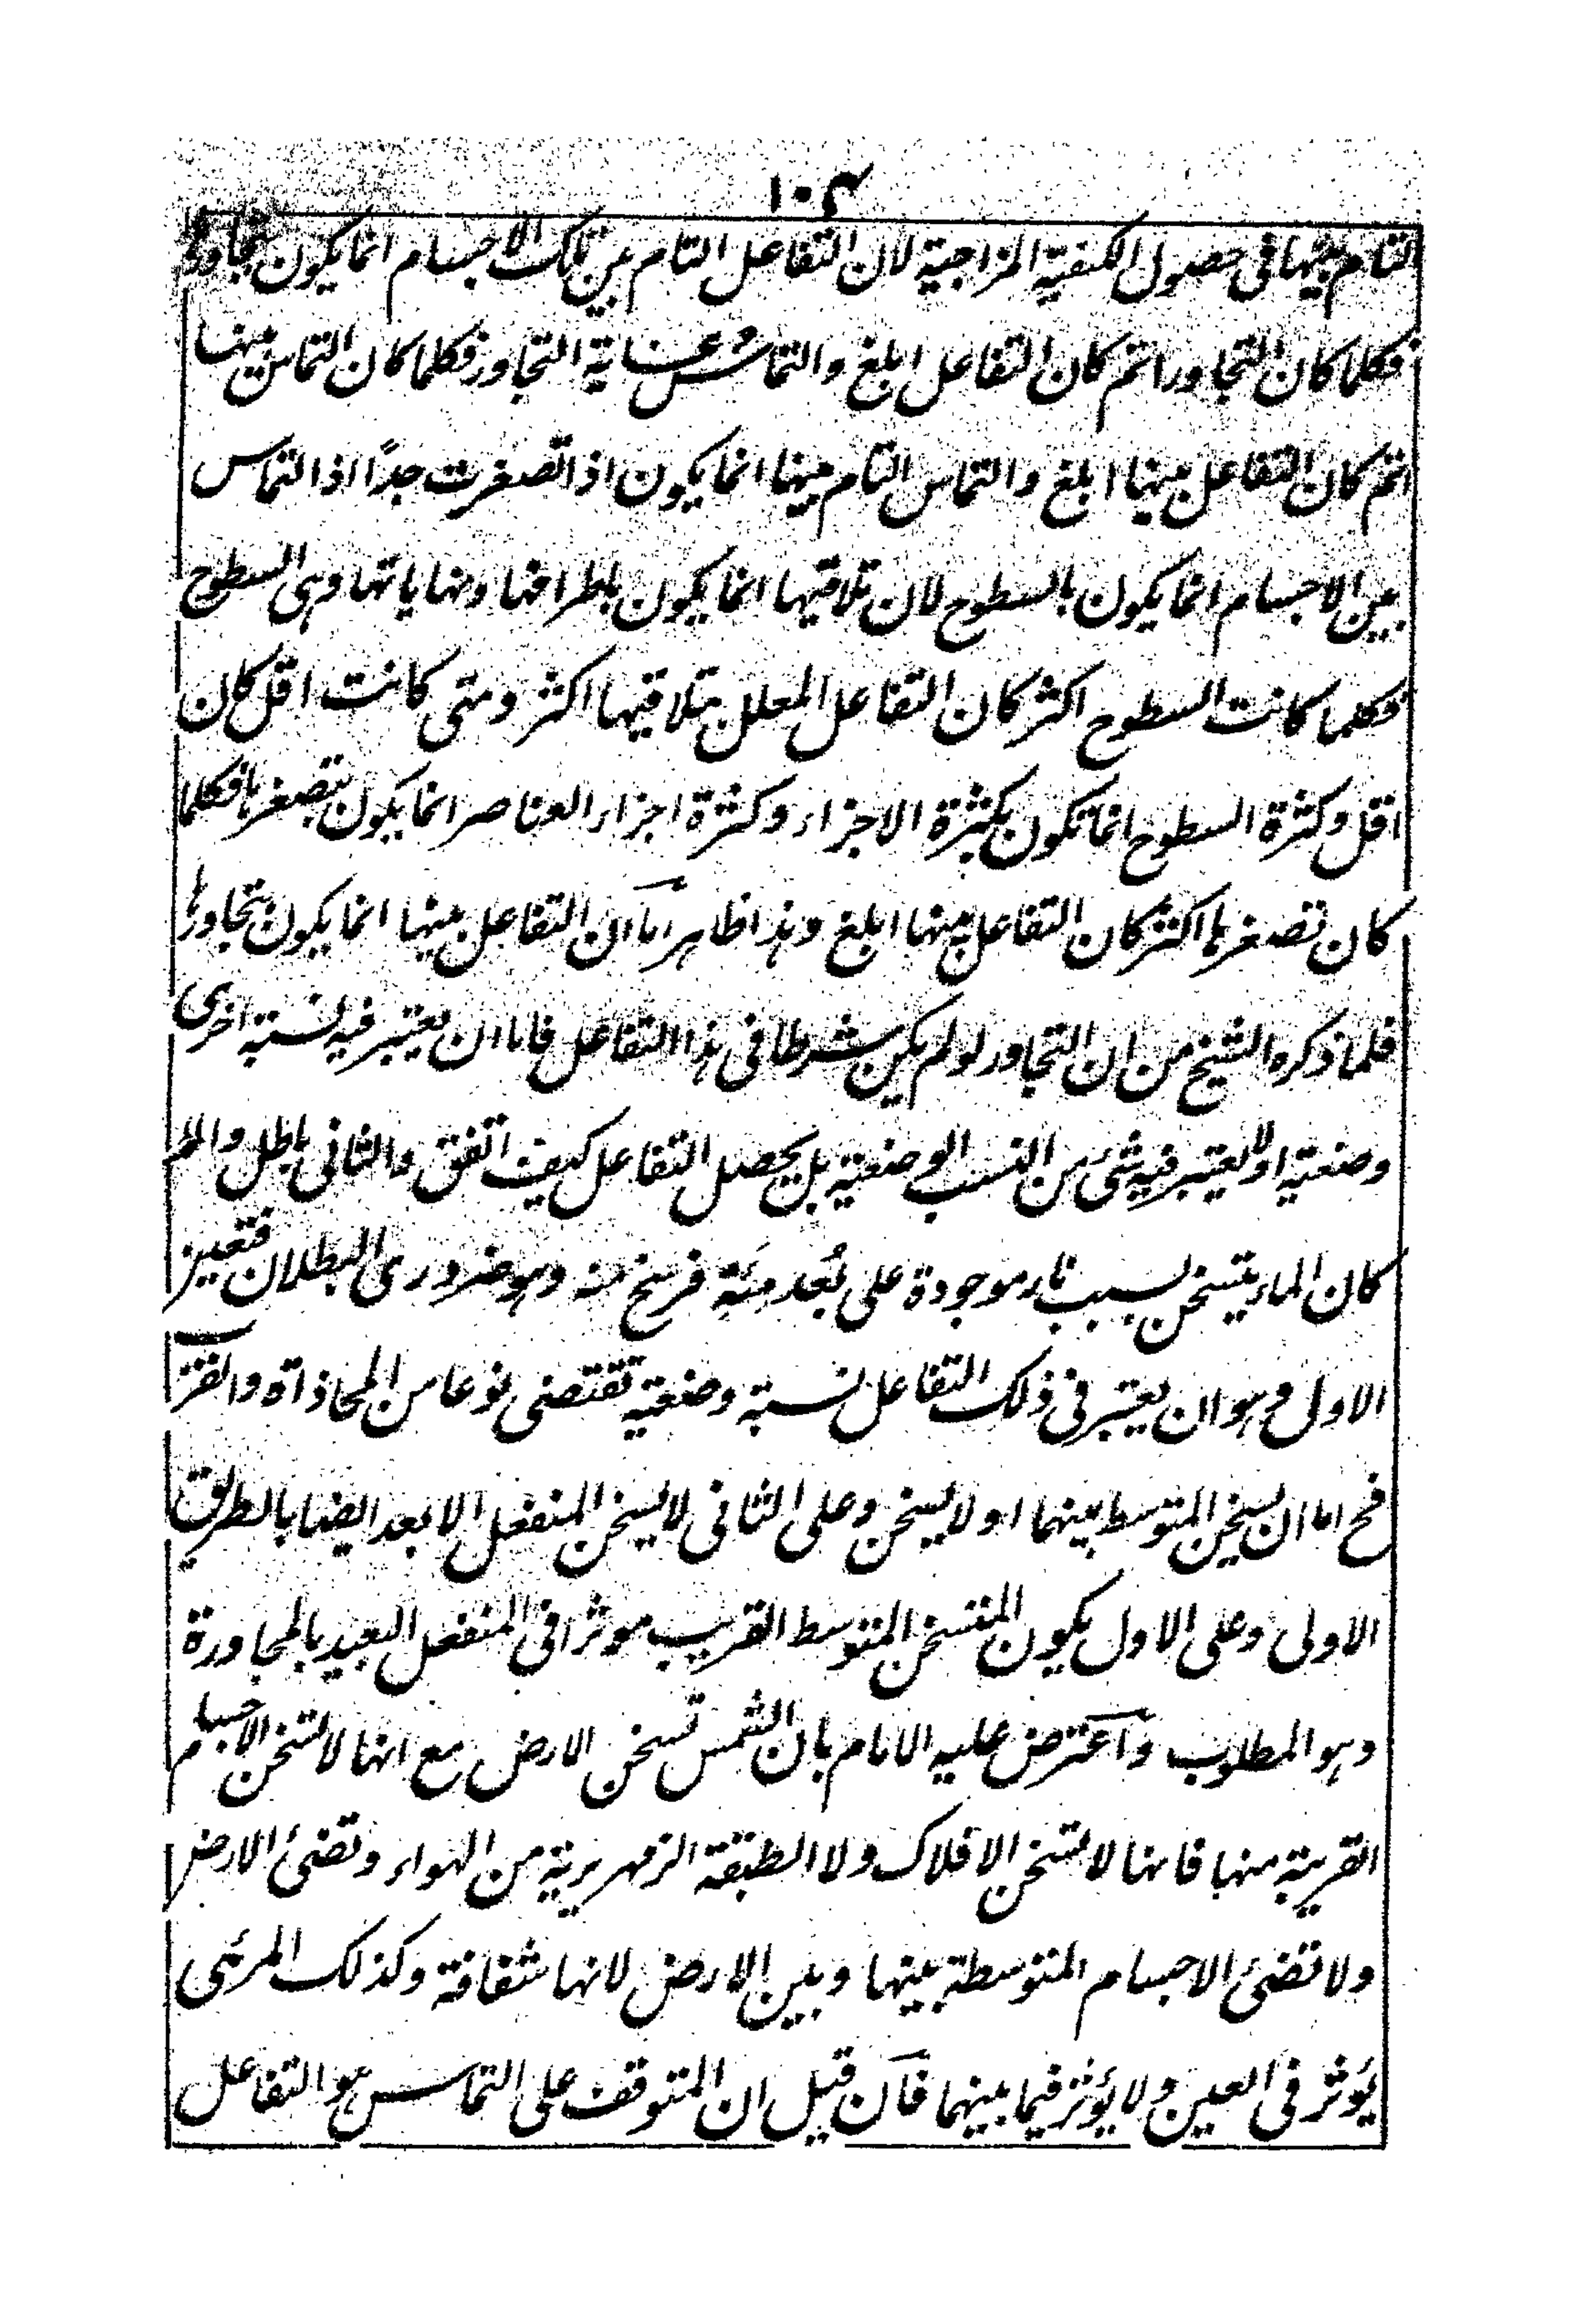 ١٠٤
التام بينها فى حصول الكيفية المزاجية لان التفاعل التام بين تلك الاجسام انما يكون بتجاورها
فكلما كان التجاور اتم كان التفاعل ابلغ والتماس غاية التجاور فكلما كان التماس بينها
اتم كان التفاعل بينها ابلغ والتماس التام بينها انما يكون اذا تصغرت جدًا اذ التماس
بين الاجسام انما يكون بالسطوح لان تلاقيها انما يكون باطرافها ونهاياتها وهى السطوح
فكلما كانت السطوح اكثر كان التفاعل المعلل بتلاقيها اكثر ومتى كانت اقل كان
اقل وكثرة السطوح انما تكون بكثرة الاجزاء وكثرة اجزاء العناصر انما يكون بتصغرها فكلما
كان تصغرها اكثر كان التفاعل بينها ابلغ وهذا ظاهر اما ان التفاعل بينها انما يكون بتجاورها
فلما ذكره الشيخ من ان التجاور لو لم يكن شرطا فى هذا التفاعل فاما ان يعتبر فيه نسبة اخرى
وضعية او لا يعتبر فيه شئ من النسب الوضعية بل يحصل التفاعل كيف اتفق والثانى باطل والا لم
كان الماء يتسخن بسبب نار موجودة على بُعد مئة فرسخ منه وهو ضرورى البطلان فتعين
الاول وهو ان يعتبر فى ذلك التفاعل نسبة وضعية تقتضى نوعا من المحاذاة والقرب
فح اما ان يسخن المتوسط بينهما او لا يسخن وعلى الثانى لا يسخن المنفعل الابعد ايضا بالطريق
الاولى وعلى الاول يكون المتسخن المتوسط القريب موثرا فى المنفعل البعيد بالمجاورة
وهو المطلوب واعترض عليه الامام بان الشمس تسخن الارض مع انها لا تسخن الاجسام
القريبة منها فانها لا تسخن الافلاك ولا الطبقة الزمهريرية من الهواء وتضئ الارض
ولا تضئ الاجسام المتوسطة بينها وبين الارض لانها شفافة وكذلك المرئى
يؤثر فى العين ولا يؤثر فيما بينهما فان قيل ان المتوقف على التماس هو التفاعل